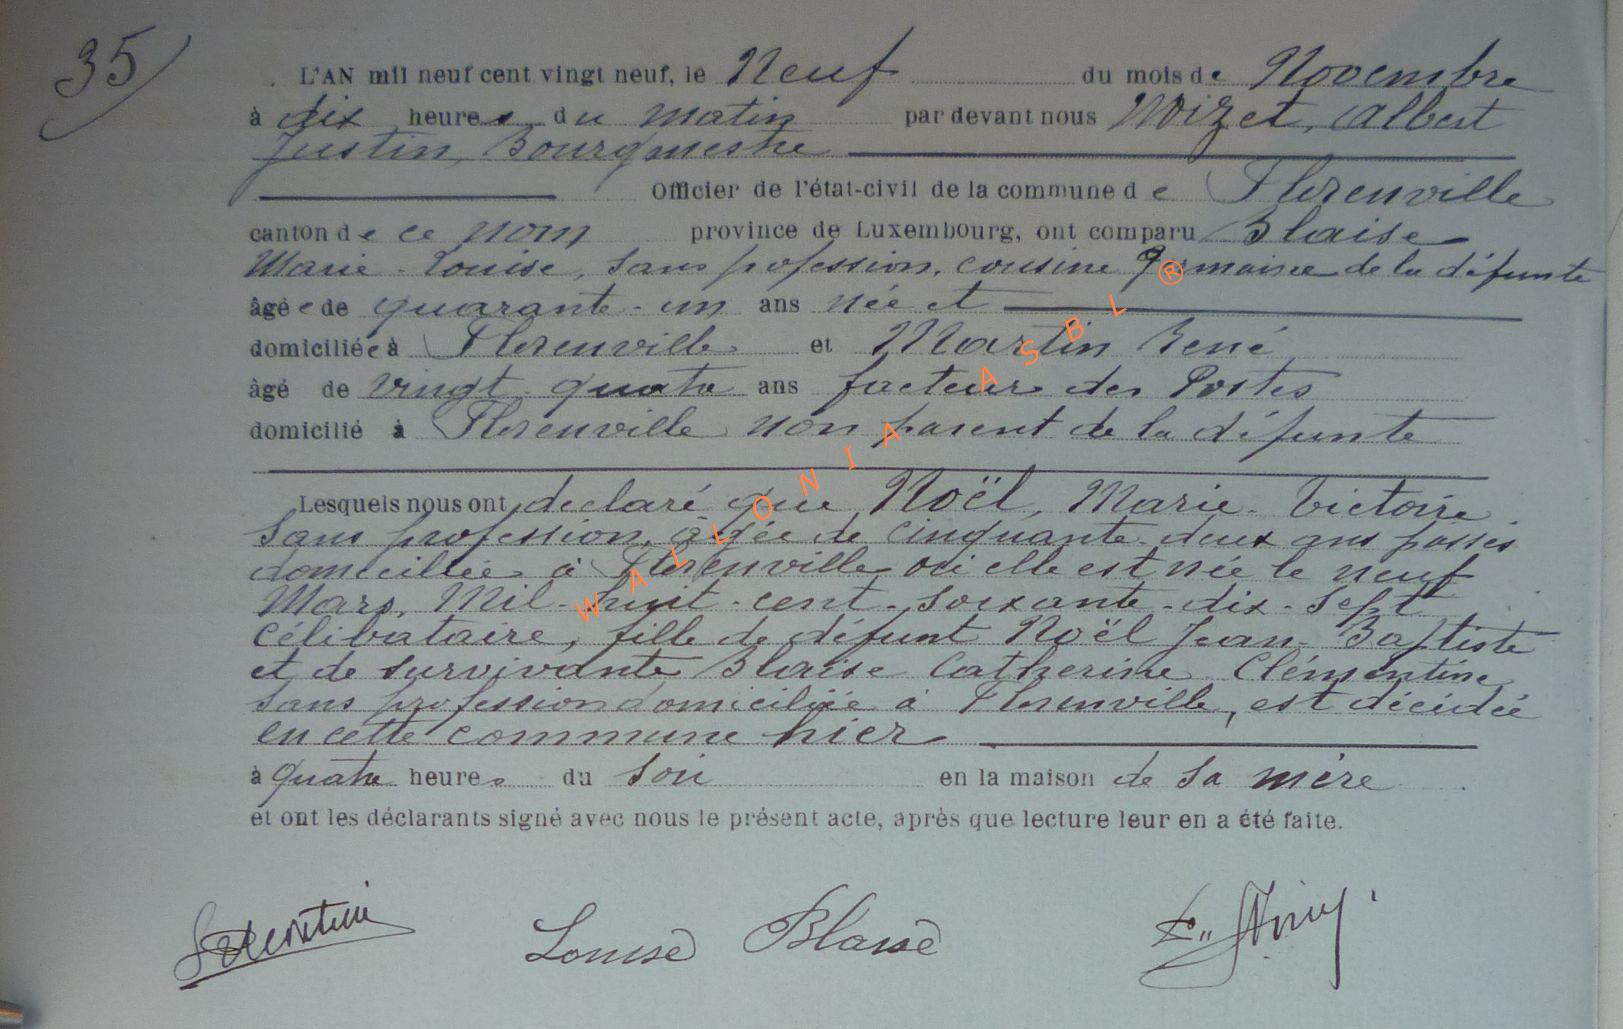 35
L'AN mil neuf cent vingt neuf, le Neuf du mois de Novembre
à dix heures du matin par devant nous Noizet, Albert
Justin, Bourgmestre
Officier de l'état-civil de la commune de Florenville
canton de ce nom province de Luxembourg, ont comparu Blaise
Marie-Louise, sans profession, cousine germaine de la défunte
âgée de quarante-un ans née et
domiciliée à Florenville et Martin René,
âgé de vingt-quatre ans facteur des Postes
domicilié à Florenville non parent de la défunte
Lesquels nous ont declaré que Noël, Marie-Victoire
sans profession, âgée de cinquante-deux ans passés
domiciliée à Florenville où elle est née le neuf
Mars, Mil-huit-cent-soixante-dix-sept
célibataire, fille de défunt Noël Jean-Baptiste
et de survivante Blaise Catherine Clémentine
sans profession domiciliée à Florenville, est décédée
en cette commune hier
à quatre heures du soir en la maison de sa mère
et ont les déclarants signé avec nous le présent acte, après que lecture leur en a été faite.
Louise Blaise
WALLONIA ASBL ®